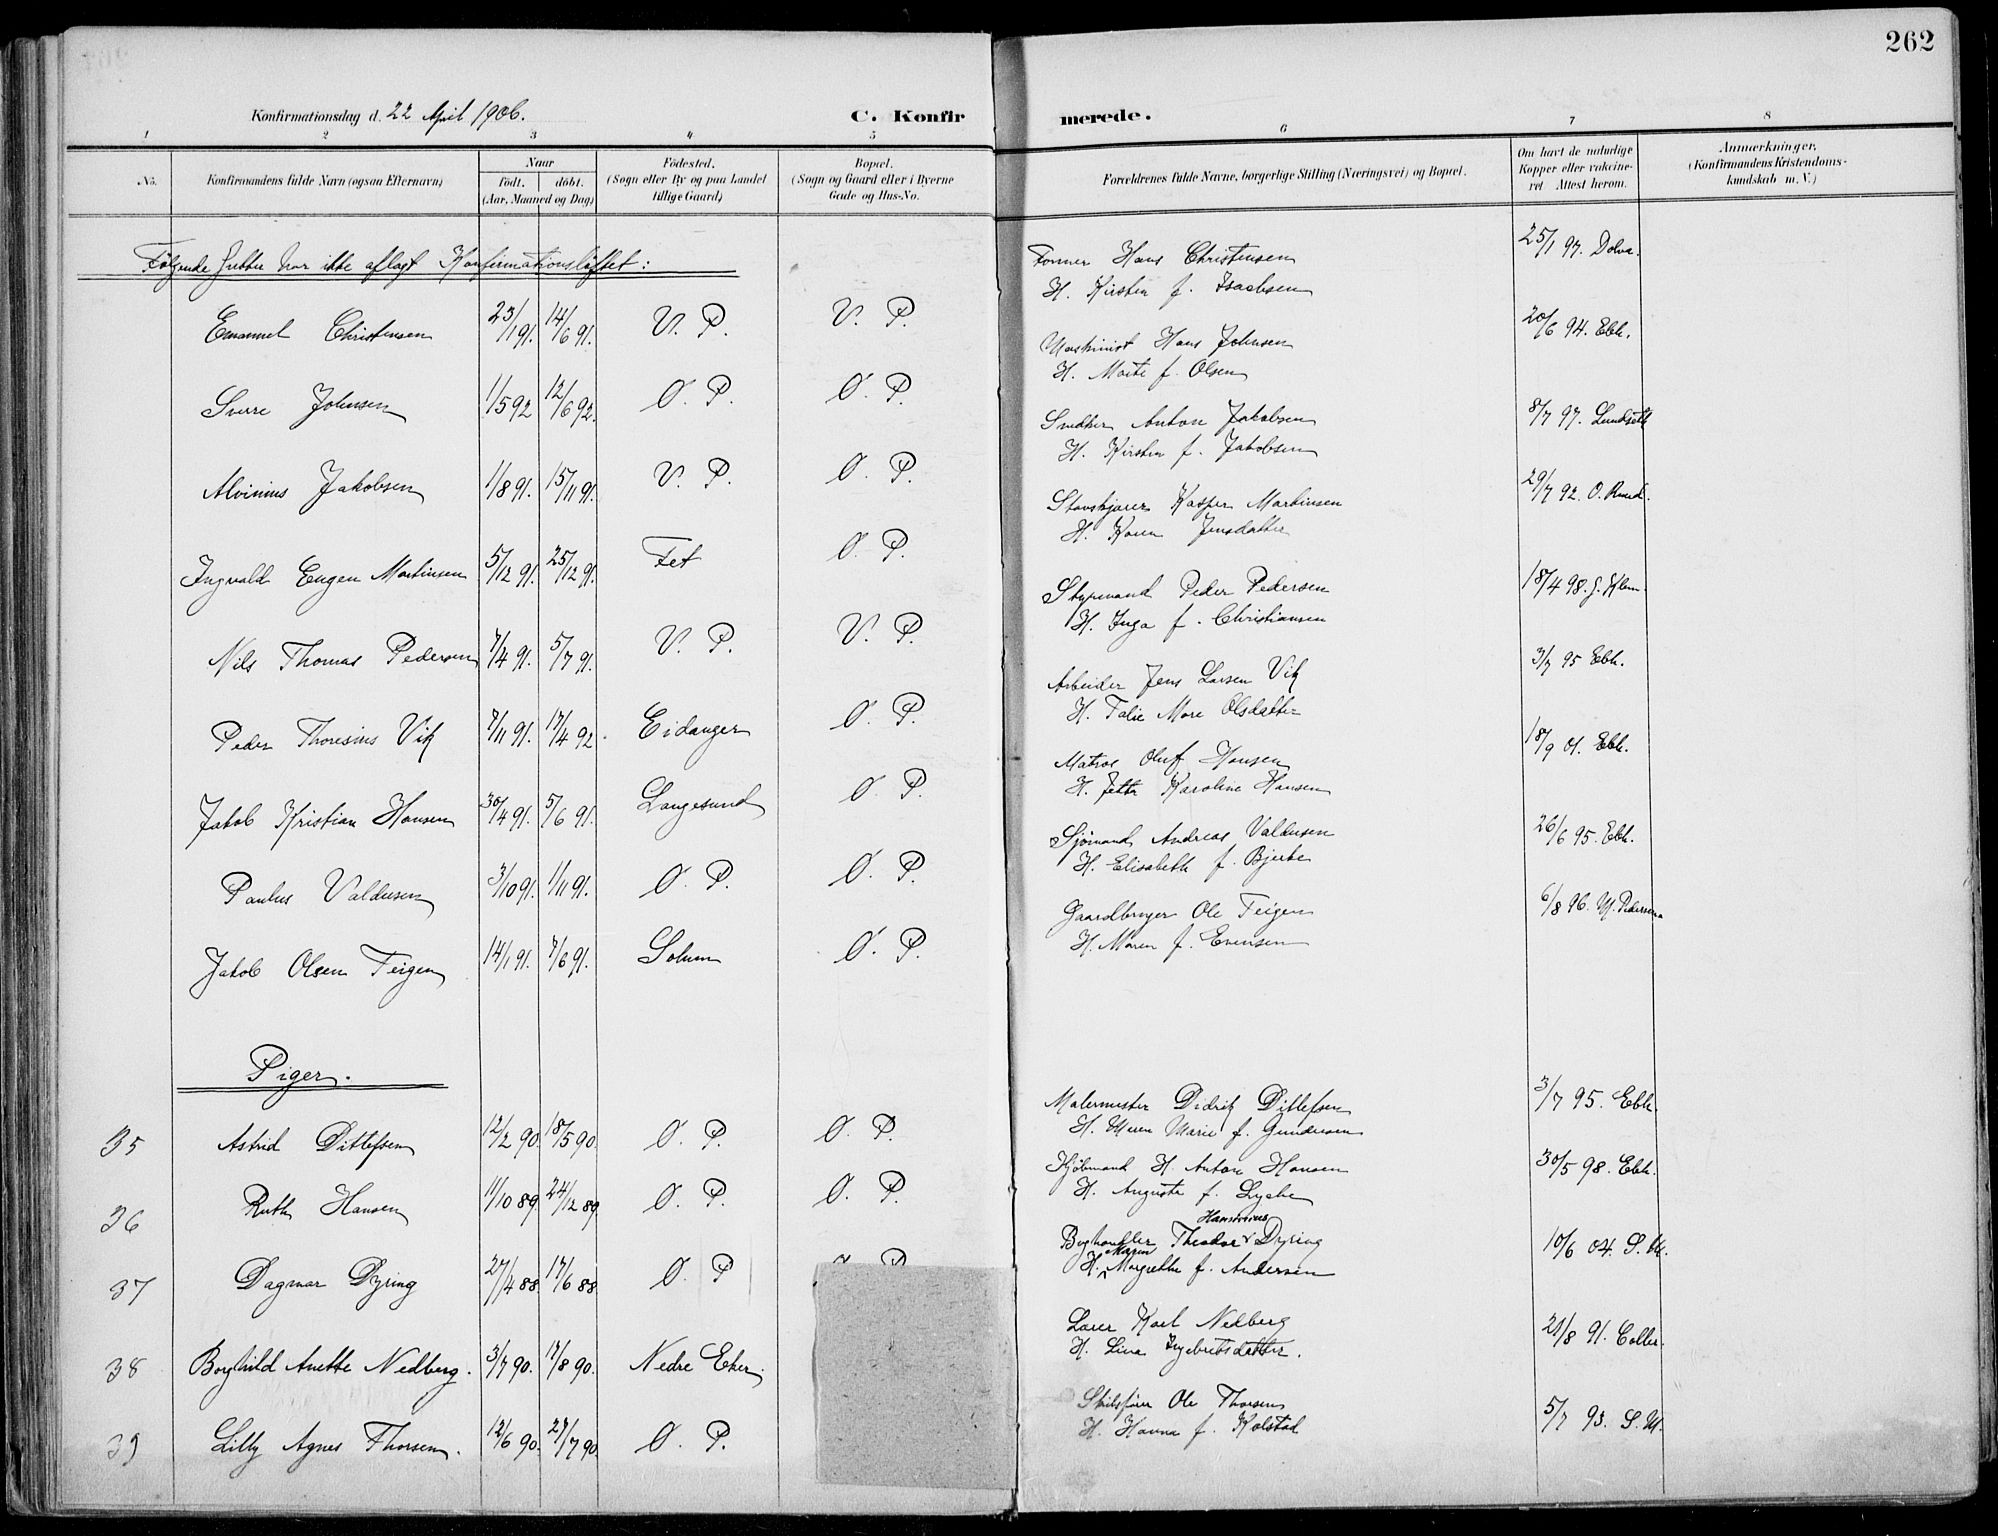 262
Konfirmationsdag d. 22 April 1906.
C. Konfirmerede.
1 2 3 4 5 6 7 8
No.
Konfirmandens fulde Navn (ogsaa Efternavn)
Naar
født. døbt.
(Aar, Maaned og Dag)
Fødested.
(Sogn eller By og paa Landet
tillige Gaard)
Bopæl.
(Sogn og Gaard eller i Byerne
Gade og Hus-No.
Forældrenes fulde Navne, borgerlige Stilling (Næringsvei) og Bopæl.
Om havt de naturlige
Kopper eller vakcine-
ret Attest herom.
Anmærkninger.
(Konfirmandens Kristendoms-
kundskab m. V.)
Følgende Gutter har ikke aflagt Konfirmationsløftet:
Emanuel Christensen 23/1 91. 14/6 91. V. P. V. P.
Former Hans Christensen 25/1 97. Dolva.
H. Kirsten f. Isachsen
Sverre Johnsen 1/5 92 12/6 92. Ø. P. Ø. P.
Maskinist Hans Johnsen 20/6 94. Ebh.
H. Marte f. Olsen
Alvinius Jakobsen 1/8 91. 15/11 91. V. P. Ø. P.
Snedker Anton Jakobsen 8/7 97. Lundseth
H. Kirsten f. Jakobsen
Ingvald Eugen Martinsen 5/12 91. 25/12 91. Fet Ø. P.
Stavskjærer Kasper Martinsen 29/7 92. O. Rued.
H. Karen Jensdatter
Nils Thomas Pedersen 7/4 91. 5/7 91. V. P. V. P.
Styrmand Peder Pedersen 18/4 98. J. Klem.
H. Inga f. Christiansen
Peder Thoresius Vik 7/11 91. 17/4 92. Eidanger Ø. P.
Arbeider Jens Larsen Vik 3/7 95 Ebh.
H. Talie Mare Olsdatter
Jakob Kristian Hansen 30/4 91. 5/6 91. Langesund Ø. P.
Matros Oluf Hansen 18/9 01. Ebh.
H. Jette Karoline Hansen
Paulus Valdusen 3/10 91. 1/11 91. Ø. P. Ø. P.
Sjømand Andreas Valdusen 26/6 95. Ebh.
H. Elisabeth f. Bjerke
Jakob Olsen Teigen 14/1 91. 7/6 91. Solum Ø. P.
Gaardbruger Ole Teigen 6/8 96. M. Pedersen
H. Maren f. Evensen
Piger.
35 Astrid Ditlefsen 12/2 90. 18/5 90. Ø. P. Ø. P.
Malermester Didrik Ditlefsen 3/7 95. Ebh.
H. Maren Marie f. Gundersen
36 Ruth Hansen 11/10 89. 24/12 89. Ø. P. Ø. P.
Kjøbmand H. Anton Hansen 30/5 98. Ebh.
H. Augusta f. Lyche
37 Dagmar Dyring 27/4 88. 17/6 88. Ø. P
Hansinius
Boghandler Theodor Dyring 10/6 04. S. M.
Maren
H. Margrethe f. Andersen
38 Borghild Anette Nedberg. 3/7 90. 17/8 90. Nedre Eker.
Lærer Karl Nedberg 21/8 91. Coller.
H. Lina Ingebretsdatter.
39 Lilly Agnes Thorsen. 12/6 90. 27/7 90. Ø. P.
Skibsfører Ole Thorsen 5/7 93. S. M.
H. Hanna f. Kolstad